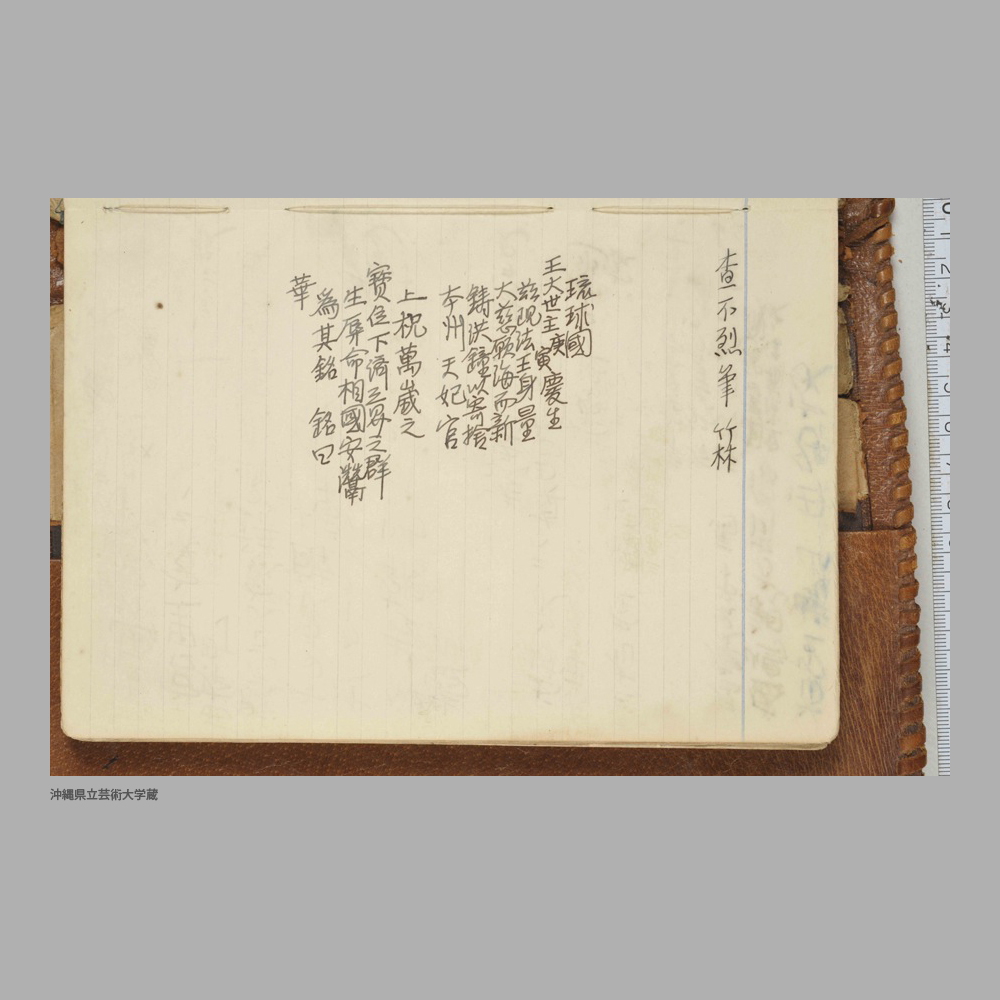 查不烈筆 竹林
琉球國
王大世主庚寅慶生
茲現法王身量
大慈願海而新
鋳洪鐘以寄捨
本州天妃宮
上祝萬歲之
寶位下濟三界之群
生辱命相國安潛
為其銘 銘曰
華
沖縄県立芸術大学蔵